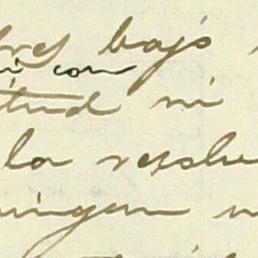 bajo
ni con
tud ni
la resolu
ningun